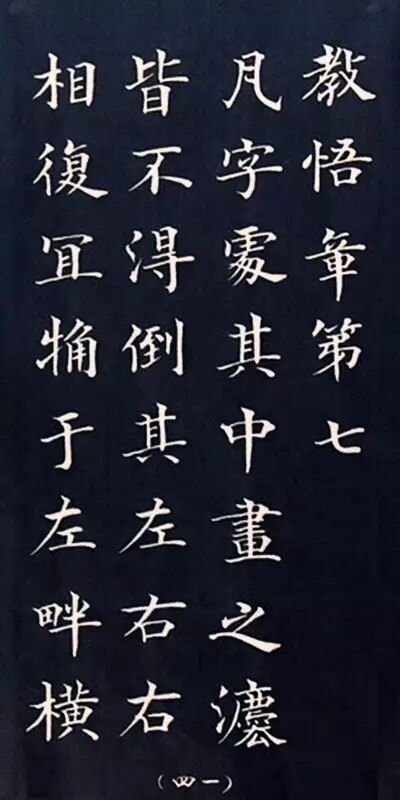 教悟章第七
凡字處其中畫之灋
皆不得倒其左右右
相復冝粗于左畔橫
（四一）